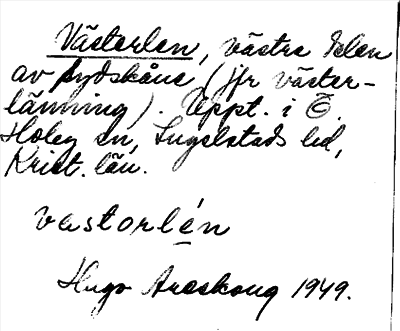 Västerlen, västra delen
av sydskåne (jfr väster-
länning). Uppt. i Ö.
Hoby sn, Ingelstads hd,
Krist. län.
vastorlén
Hugo Areskoug 1949.